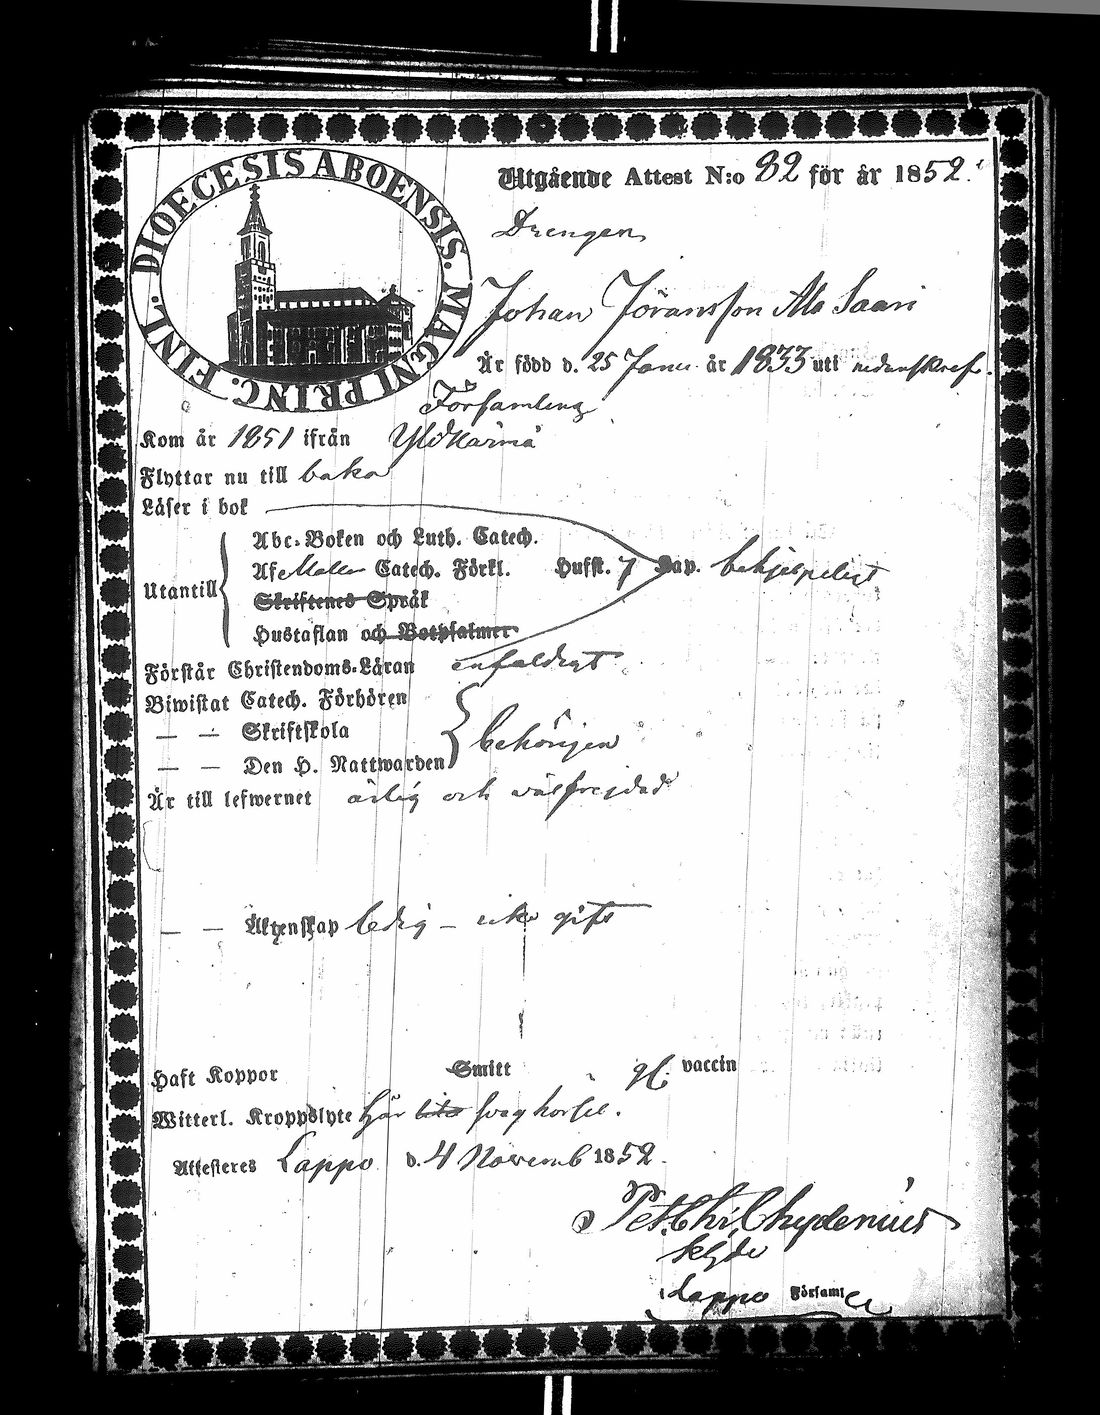 DIOECESIS ABOENSIS. MAGNI PRINC. FINL.
Utgående Attest N:o 82 för år 1852.
Drengen
Johan Jöransson Ala Saari
Är född d. 25 Janu. år 1833 uti nedanskref.
Församling
Kom år 1851 ifrån Ylikarmä
Flyttar nu till baka
Läser i bok
Abc-Boken och Luth. Catech.
Utantill Af Catech. Förkl. Hufst. 7 Kap. behjelpeligt
Skriftenes Språk
Hustaflan och Botpsalmer
Förstår Christendoms-Läran enfaldigt
Biwistat Catech. Förhören
— — Skriftskola behörigen
— — Den H. Nattwarden
Är till lefwernet ärlig och välfrejdad
— — Äktenskap ledig – gift
Haft Koppor Smitt vaccin
Witterl. Kroppslyte Här svag hörsel.
Attesteres Lappo d. 4 Novemb 1852.
Pet. Chydenius
Lappo Församl.